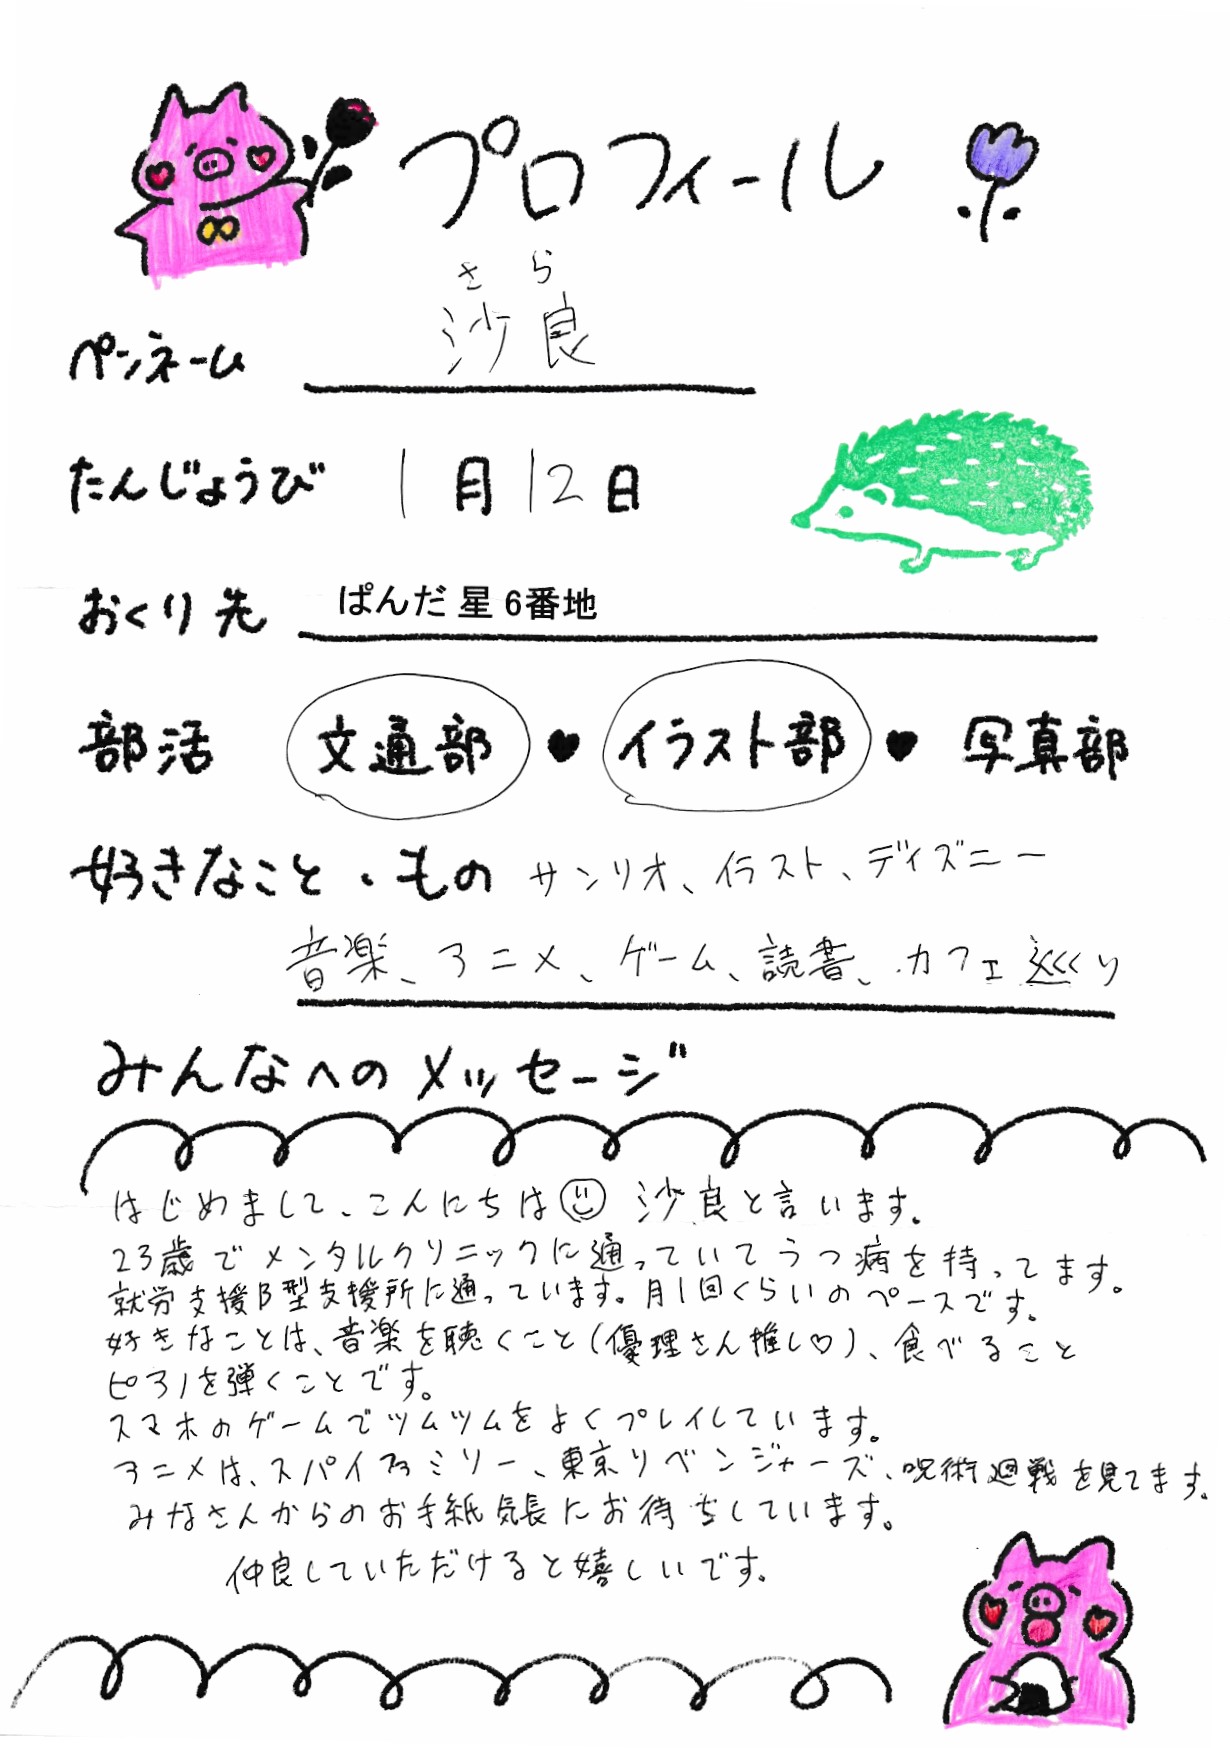 プロフィール
さら
ペンネーム 沙良
たんじょうび 1月12日
おくり先 ぱんだ星6番地
部活 文通部♥イラスト部♥写真部
好きなこと・もの サンリオ、イラスト、ディズニー
音楽、アニメ、ゲーム、読書、カフェ巡り
みんなへのメッセージ
はじめまして、こんにちは☺沙良と言います。
23歳でメンタルクリニックに通っていてうつ病を持ってます。
就労支援B型支援所に通っています。月1回くらいのペースです。
好きなことは、音楽を聴くこと(優理さん推し♡)、食べること
ピアノを弾くことです。
スマホのゲームでツムツムをよくプレイしています。
アニメは、スパイファミリー、東京リベンジャーズ、呪術廻戦を見てます。
みなさんからのお手紙気長にお待ちしています。
仲良していただけると嬉しいです。